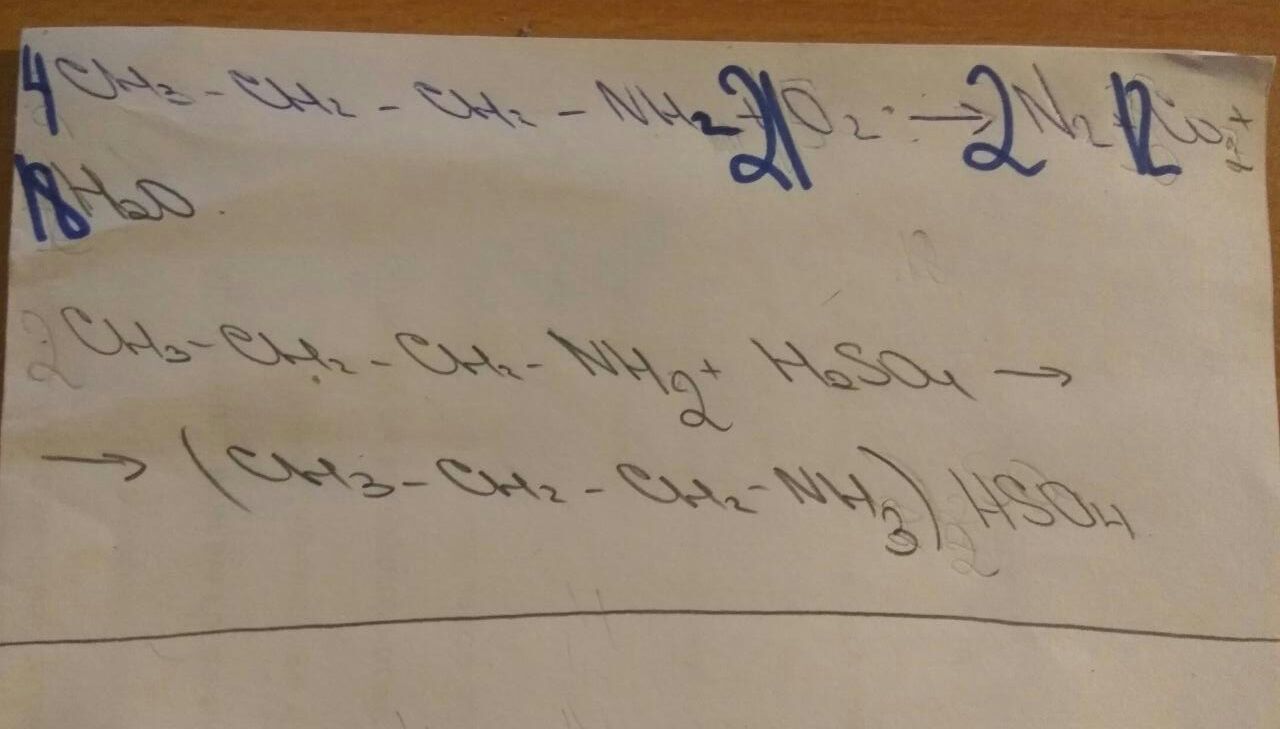 4CH₃-CH₂-CH₂-NH₂+21O₂→2N₂+12CO₂+
18H₂O.
2CH₃-CH₂-CH₂-NH₂+ H₂SO₄ →
→ (CH₃-CH₂-CH₂-NH₃)₂HSO₄